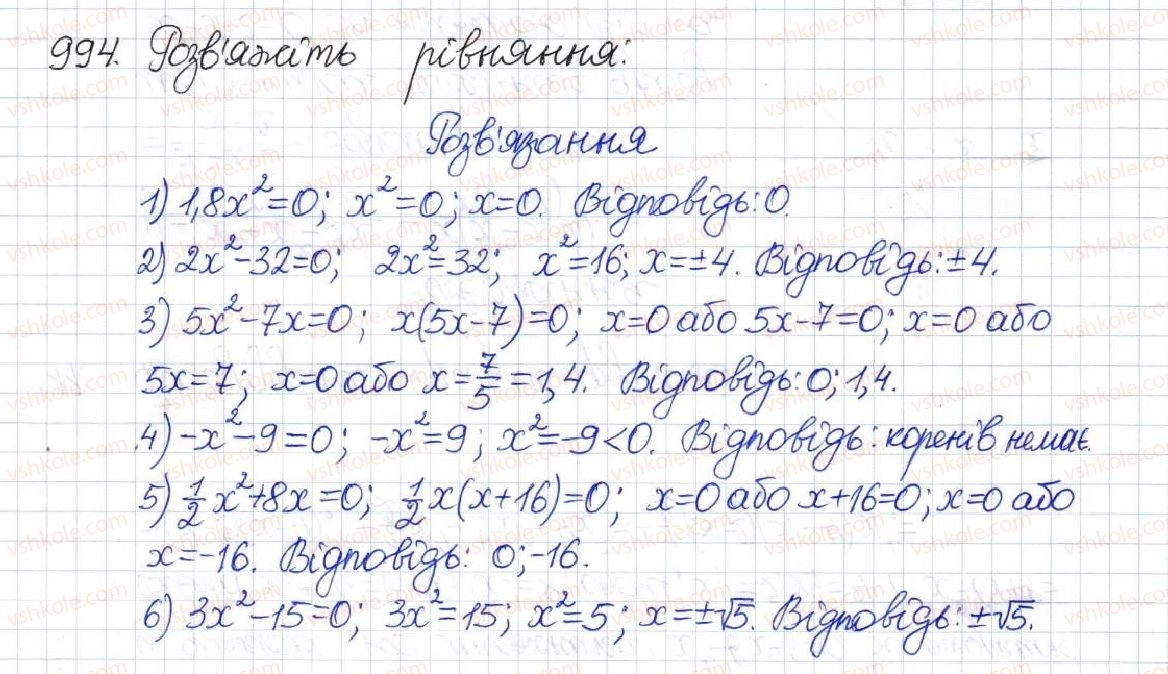 994. Розв'яжіть рівняння:
Розв'язання
1) 1,8x²=0; x²=0; x=0. Відповідь: 0.
2) 2x²-32=0; 2x²=32; x²=16; x=±4. Відповідь: ±4.
3) 5x²-7x=0; x(5x-7)=0; x=0 або 5x-7=0; x=0 або
5x=7; x=0 або x=7/5=1,4. Відповідь: 0; 1,4.
4) -x²-9=0; -x²=9; x²=-9<0. Відповідь: коренів немає.
5) 1/2x²+8x=0; 1/2x(x+16)=0; x=0 або x+16=0; x=0 або
x=-16. Відповідь: 0; -16.
6) 3x²-15=0; 3x²=15; x²=5; x=±√5. Відповідь: ±√5.